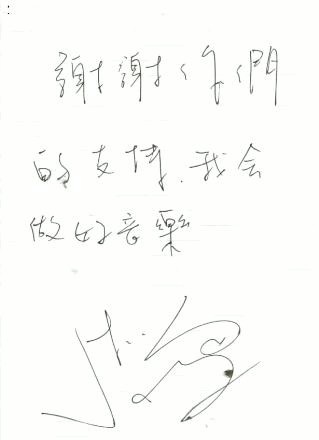 謝謝你們
的支持,我会
做好音樂